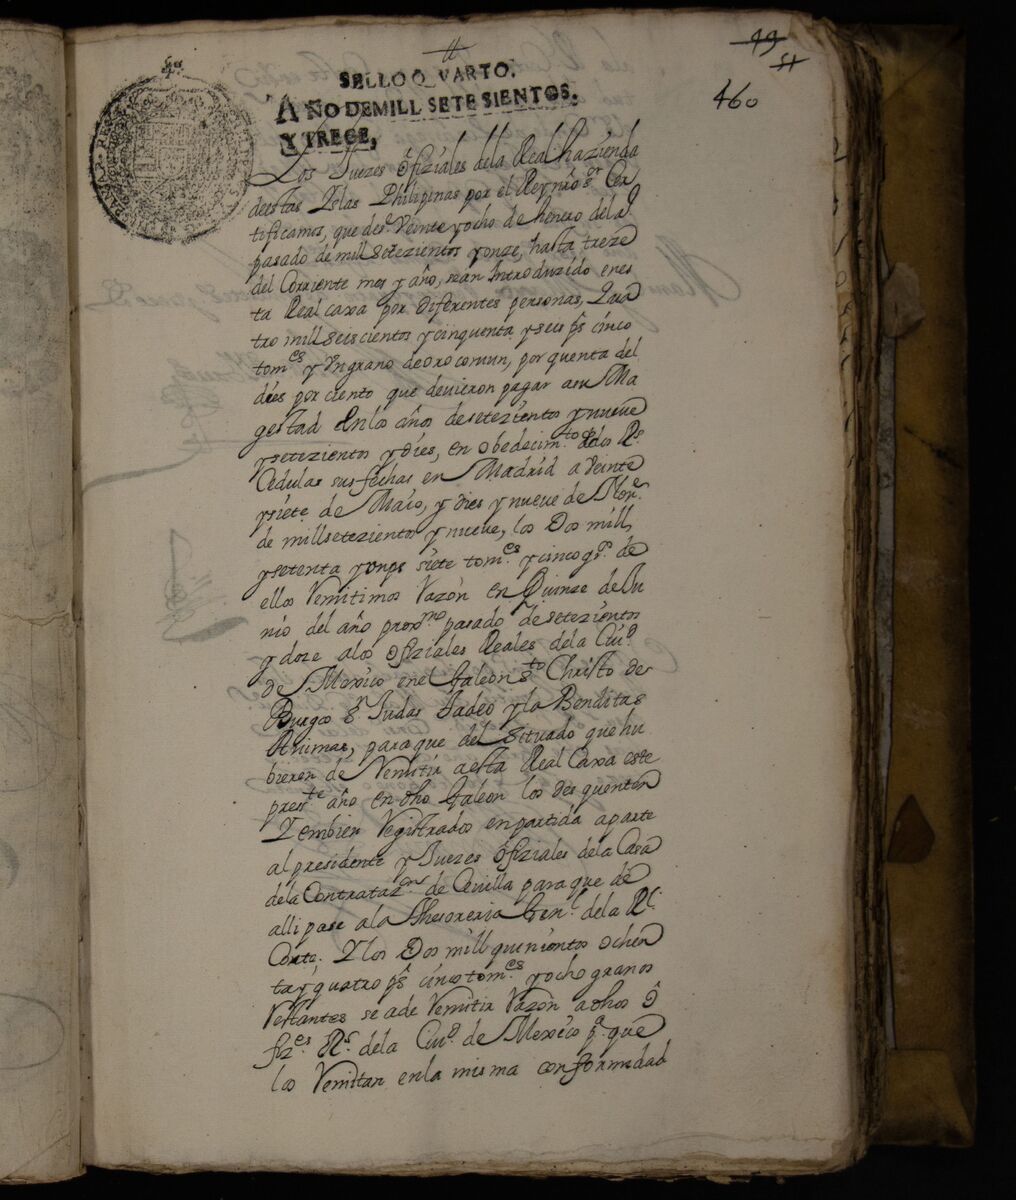 49
51
460
SELLO QVARTO,
AÑO DE MILL SETESIENTOS,
Y TRECE,
Los Juezes ofiziales dela Real hazienda
deestas Yslas Philipinas por el Rey nrõ Sor Cer
tificamos, que desde Veinte yocho de henero del aº
pasado de mill Setezientos yonze, hasta treze
del Corriente mes y año, sean Introduzido enes
ta Real caxa por diferentes personas, Qua
tro mill seiscientos ycinquenta yseis ps cinco
tomes y Un grano de oro comun, por quenta del
dies por ciento que devieron pagar asu Ma
gestad En los años desetezientos ynueve
ysetezientos y dies, en obedecimto delas Rs
Cedulas sus fechas en Madrid a Veinte
ysiete de Maio, y dies y nueve de Nore
de mill setezientos y nueve, los Dos mill,
ysetenta yonps siete tomes ycinco gs de
ellos Remitimos Razon en Quinze de Ju
nio del año proxmo pasado desetezientos
y doze alos ofiziales Reales dela Ciud
de Mexico enel Galeon Sto Christo de
Burgos Sn Judas Tadeo yla Benditas
Animas, paraque del Situado que hu
bieren de Remitir aesta Real Caxa este
preste año en dho Galeon los desquenten
Y embien Registrados en partida aparte
al presidente y Juezes ofiziales dela Casa
dela Contratazon de Cevilla paraque de
alli pase ala Thesoreria Genl dela Rl
Corte. Y los Dos mill quenientos ochen
tay quatro ps cinco tomes yocho granos
Restantes se ade Remitir Razon adhos o
fizes Rs dela Ciud de Mexico pa que
los Remitan enla misma conformidad